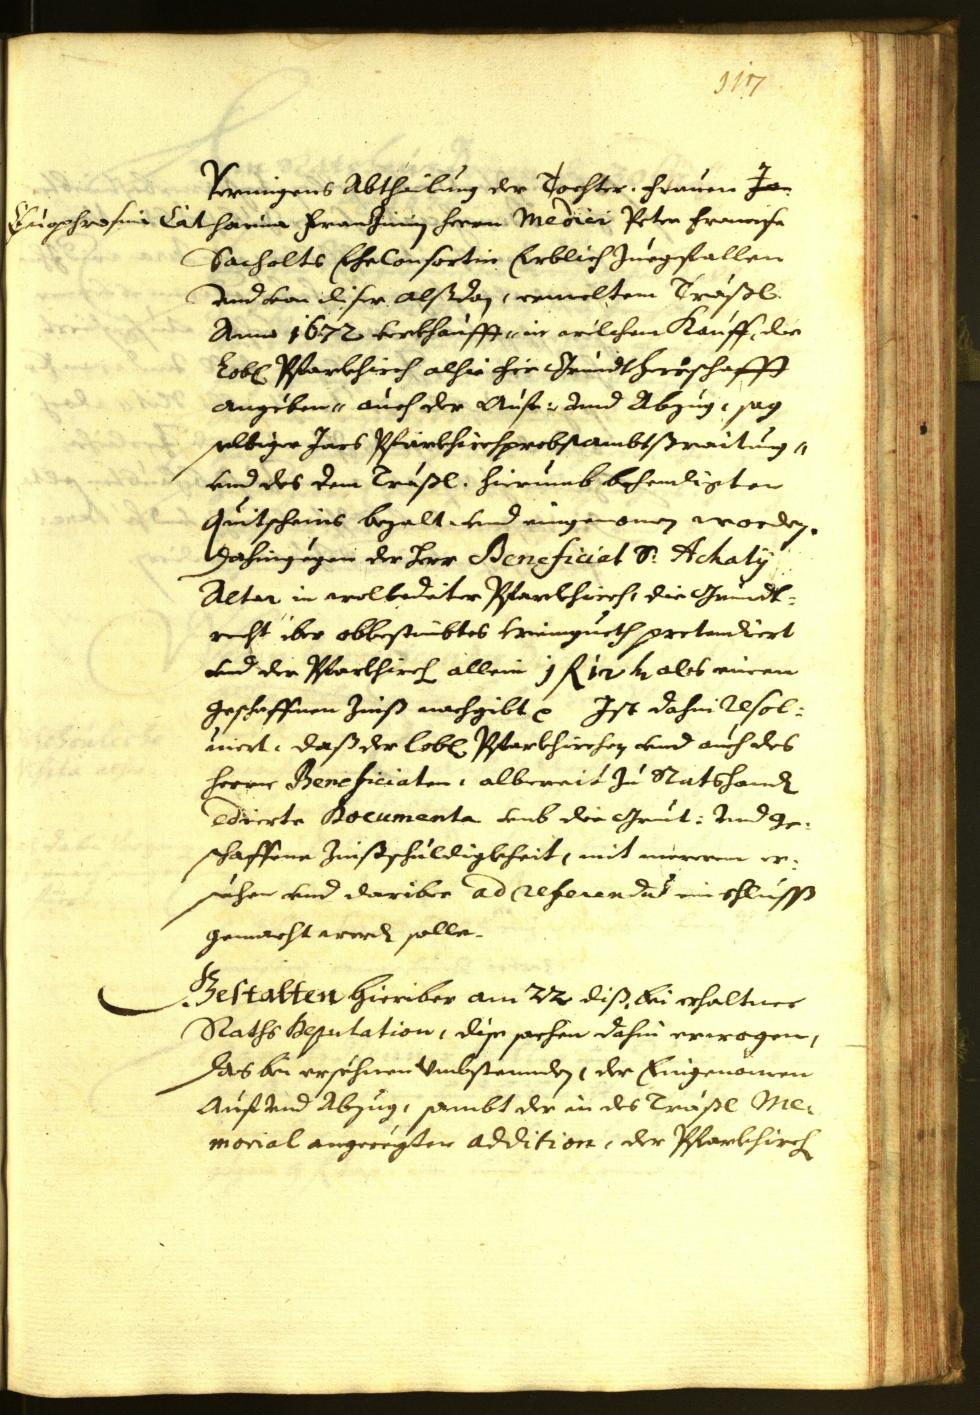 117
Vermigens Abthailung der Tochter. Frauen Jo-
Euophrosina Catharina Franzinin Herrn Medici Peter Francisc
Sacholts EheConsortin Erblich zuegefallen
und von diser alßdan, ermeltem Träßl.
Anno 1672 verkhaufft, in welchem Kauff, die
Lobl Pfarkhirch alhie fir Grundtherrschafft
angeben, auch der Auf- und Abzug, sag
selbiger Jars Pfarkhirchprobstambtsraitung,
und des dem Träßl. hierumb behendigten
Quitscheins bezalt und eingenomen worden.
Dahingegen der Herr Beneficiat S: Achatÿ
Altar in wolbediter Pfarkhirch, die Grundt-
recht iber obbestimbtes pretendiert
und der Pfarkhirch allein 1 fl 12 k als einen
geschaffnen Zinß nachgibt Ist dahin resol-
viert, daß der Lobl Pfarkhirchen und auch des
Herrn Beneficiaten, albereit zu Rats handen
edierte Documenta umb die Grunt- und ge-
schaffene Zinßschuldigkheit, mit mererem er-
sehen und dariber ad referendum ein schluss
gemacht werden solle.
Gestalten hieriber am 22 diß, bei erhaltner
Raths Deputation, dise sachen dahin erwogen,
das bei ersehnen Umbstennden, der Eingenomen
Auf und Abzug, sambt der in des Träßl Me-
morial angeregten addition, der Pfarkhirch